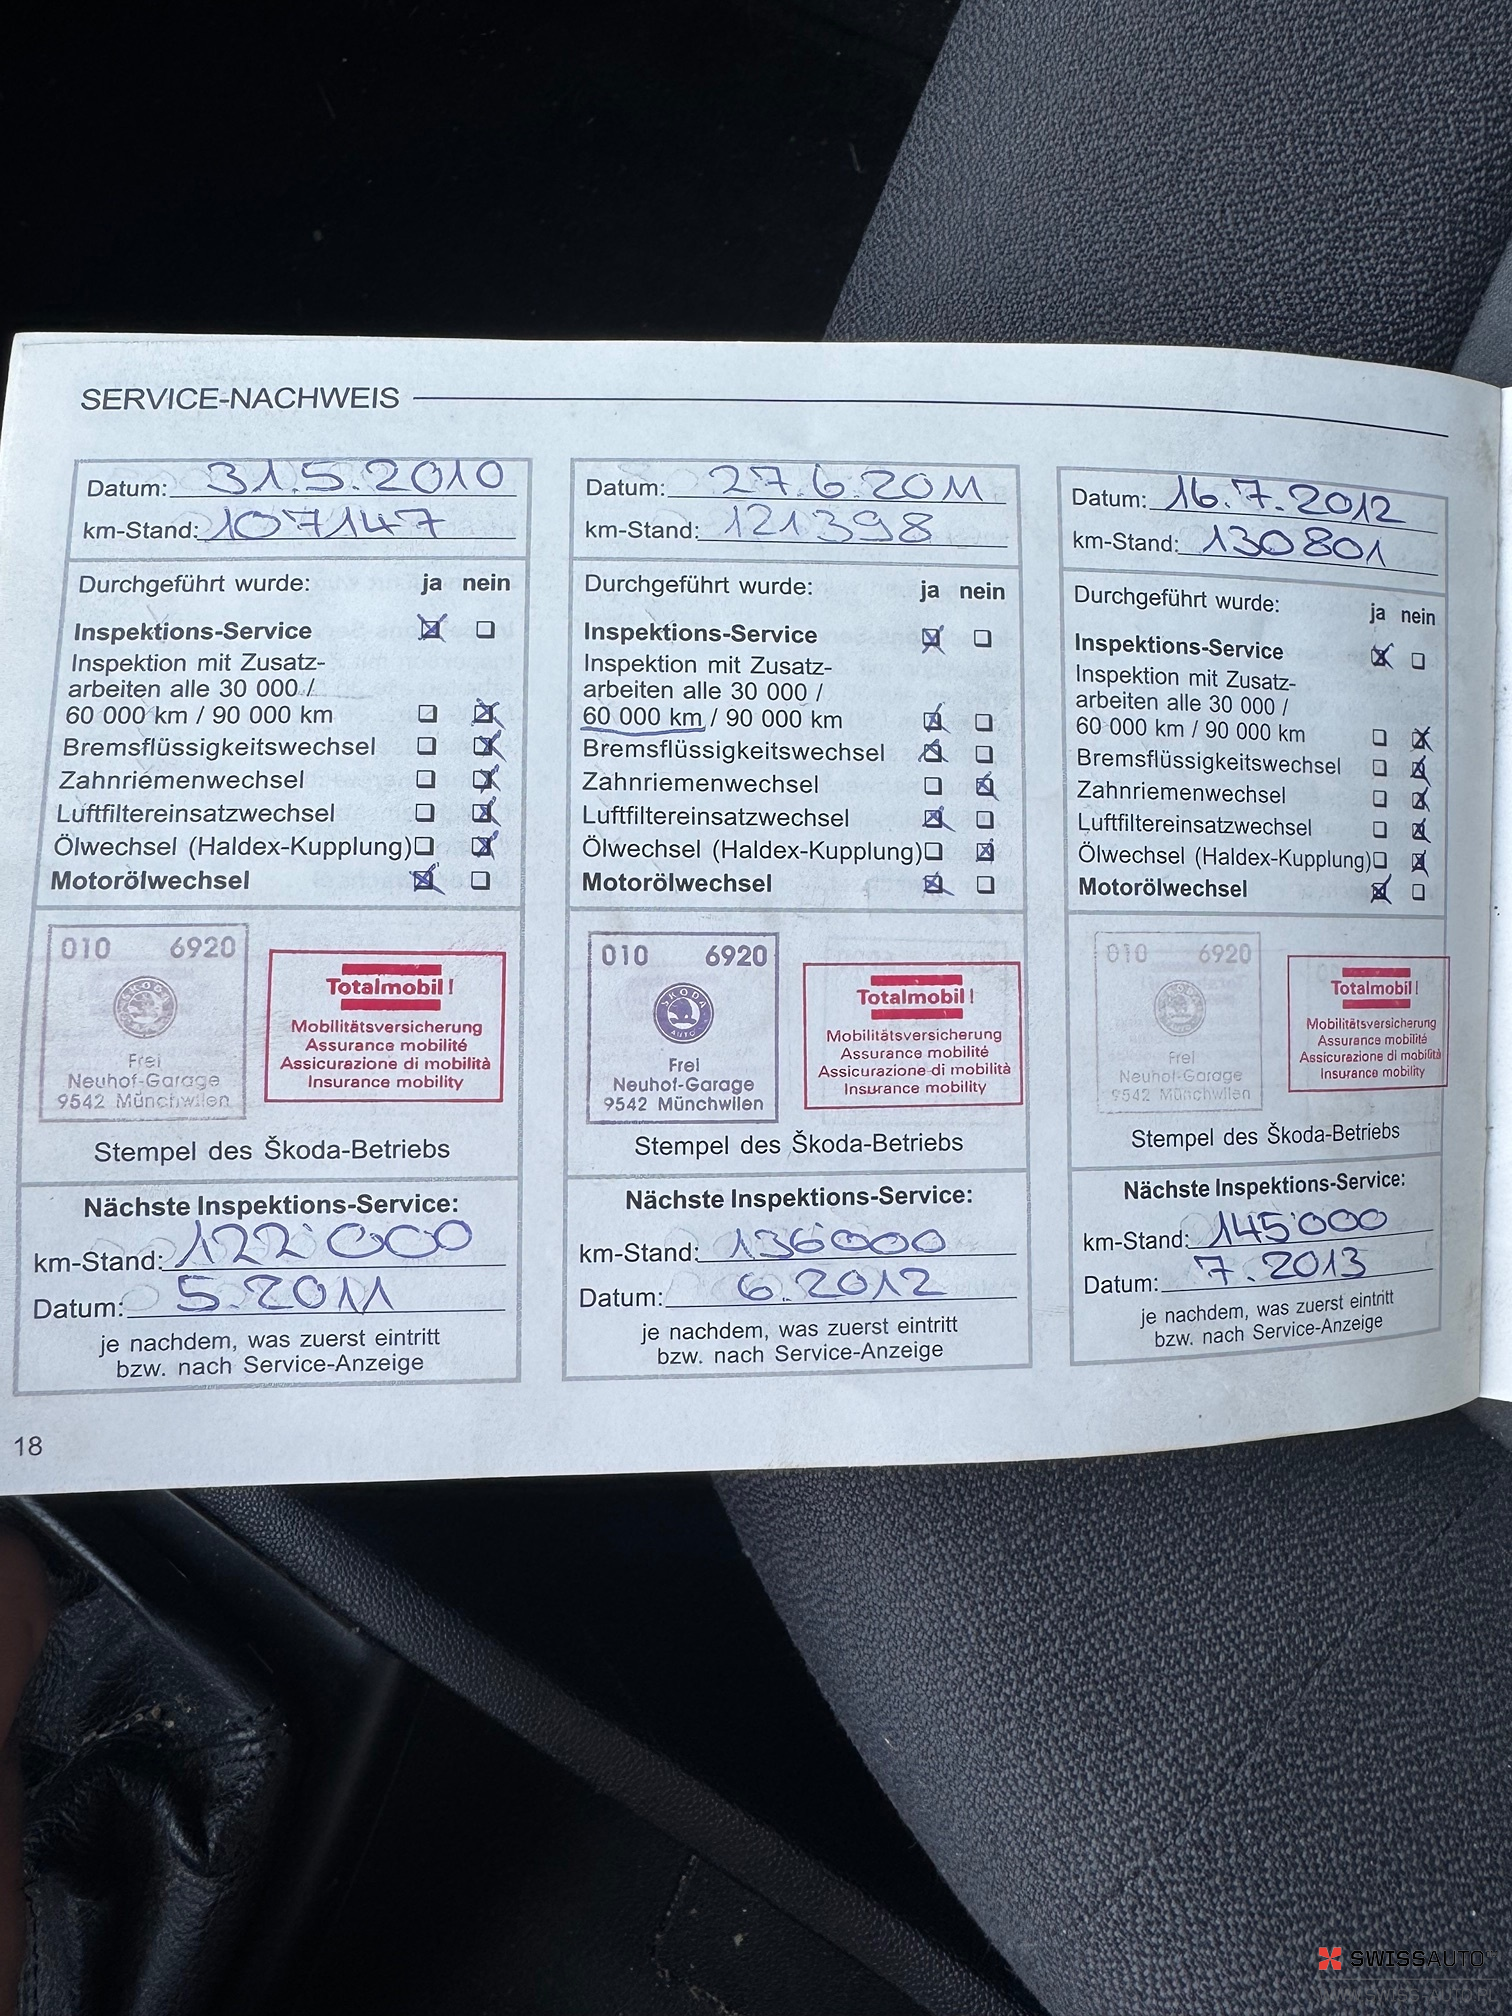 SERVICE-NACHWEIS
Datum: 31.5.2010
km-Stand: 107147
Durchgeführt wurde: ja nein
Inspektions-Service
Inspektion mit Zusatz-
arbeiten alle 30 000 /
60 000 km / 90 000 km
Bremsflüssigkeitswechsel
Zahnriemenwechsel
Luftfiltereinsatzwechsel
Ölwechsel (Haldex-Kupplung)
Motorölwechsel
010 6920
ŠKODA
Frei
Neuhof-Garage
9542 Münchwilen
Totalmobil!
Mobilitätsversicherung
Assurance mobilité
Assicurazione di mobilità
Insurance mobility
Stempel des Škoda-Betriebs
Nächste Inspektions-Service:
km-Stand: 122'000
Datum: 5.2011
je nachdem, was zuerst eintritt
bzw. nach Service-Anzeige
Datum: 27.6.2011
km-Stand: 121398
Durchgeführt wurde: ja nein
Inspektions-Service
Inspektion mit Zusatz-
arbeiten alle 30 000 /
60 000 km / 90 000 km
Bremsflüssigkeitswechsel
Zahnriemenwechsel
Luftfiltereinsatzwechsel
Ölwechsel (Haldex-Kupplung)
Motorölwechsel
010 6920
ŠKODA
AUTO
Frei
Neuhof-Garage
9542 Münchwilen
Totalmobil!
Mobilitätsversicherung
Assurance mobilité
Assicurazione di mobilità
Insurance mobility
Stempel des Škoda-Betriebs
Nächste Inspektions-Service:
km-Stand: 136000
Datum: 6.2012
je nachdem, was zuerst eintritt
bzw. nach Service-Anzeige
Datum: 16.7.2012
km-Stand: 130801
Durchgeführt wurde: ja nein
Inspektions-Service
Inspektion mit Zusatz-
arbeiten alle 30 000 /
60 000 km / 90 000 km
Bremsflüssigkeitswechsel
Zahnriemenwechsel
Luftfiltereinsatzwechsel
Ölwechsel (Haldex-Kupplung)
Motorölwechsel
010 6920
Frei
Neuhof-Garage
9542 Münchwilen
Totalmobil!
Mobilitätsversicherung
Assurance mobilité
Assicurazione di mobilità
Insurance mobility
Stempel des Škoda-Betriebs
Nächste Inspektions-Service:
km-Stand: 145'000
Datum: 7.2013
je nachdem, was zuerst eintritt
bzw. nach Service-Anzeige
18
SWISSAUTO